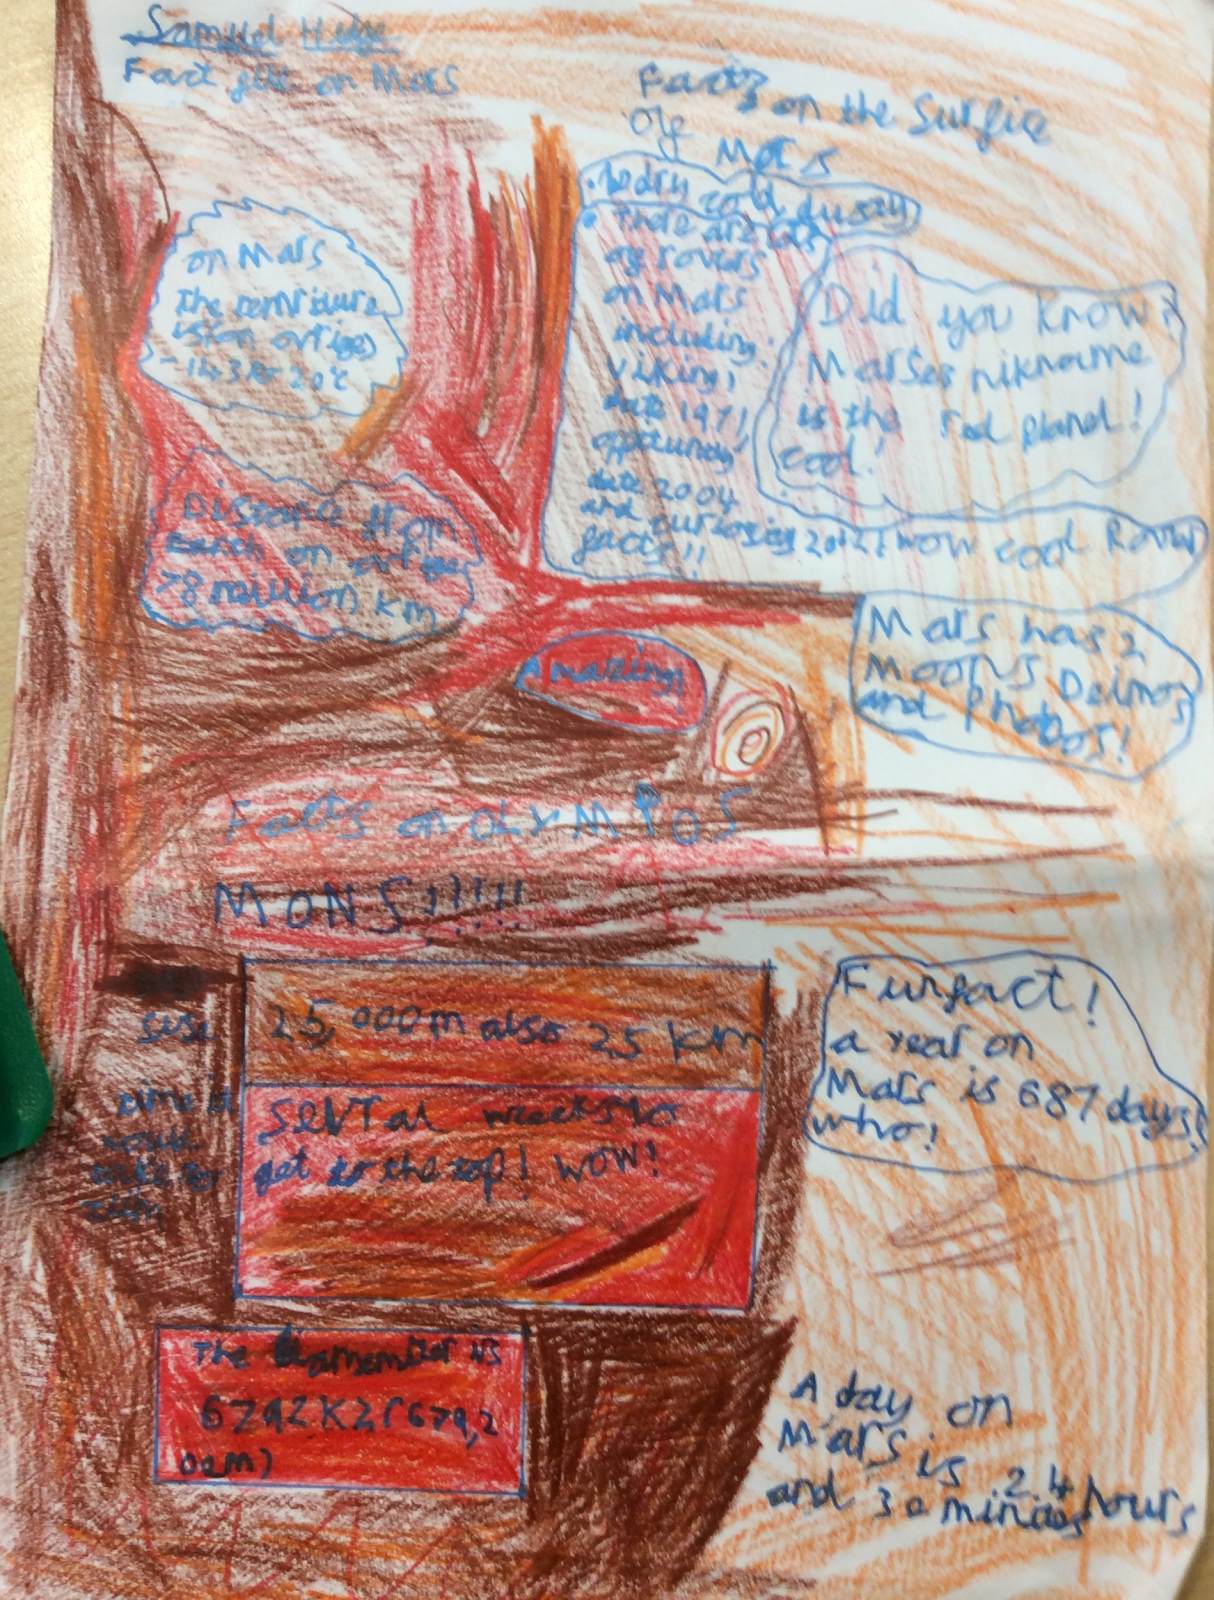 Samuel
Fact file on Mars
Facts on the Surfice
of Mars
on Mars
the
is on
-143 to 20°c
Distance from
Earth on
78 million km
dry cold
There are lots
of rovers
on Mars
including:
Viking,
date 1971,
date 2004
and 2012! wow cool Rover
facts!!
Did you know?
Marses nikname
is the red planet!
cool!
Amazing!
Mars has 2
Moons Deimos
and Phobos!
Facts on OLYMPOS
MONS!!!!!!
sise
25,000m also 25 km
time it
would
take to
sevral weeks to
get to the top! wow!
Funfact!
a year on
Mars is 687 days!
who!
The is
6792
A day on
Mars is 24 hours
and 30